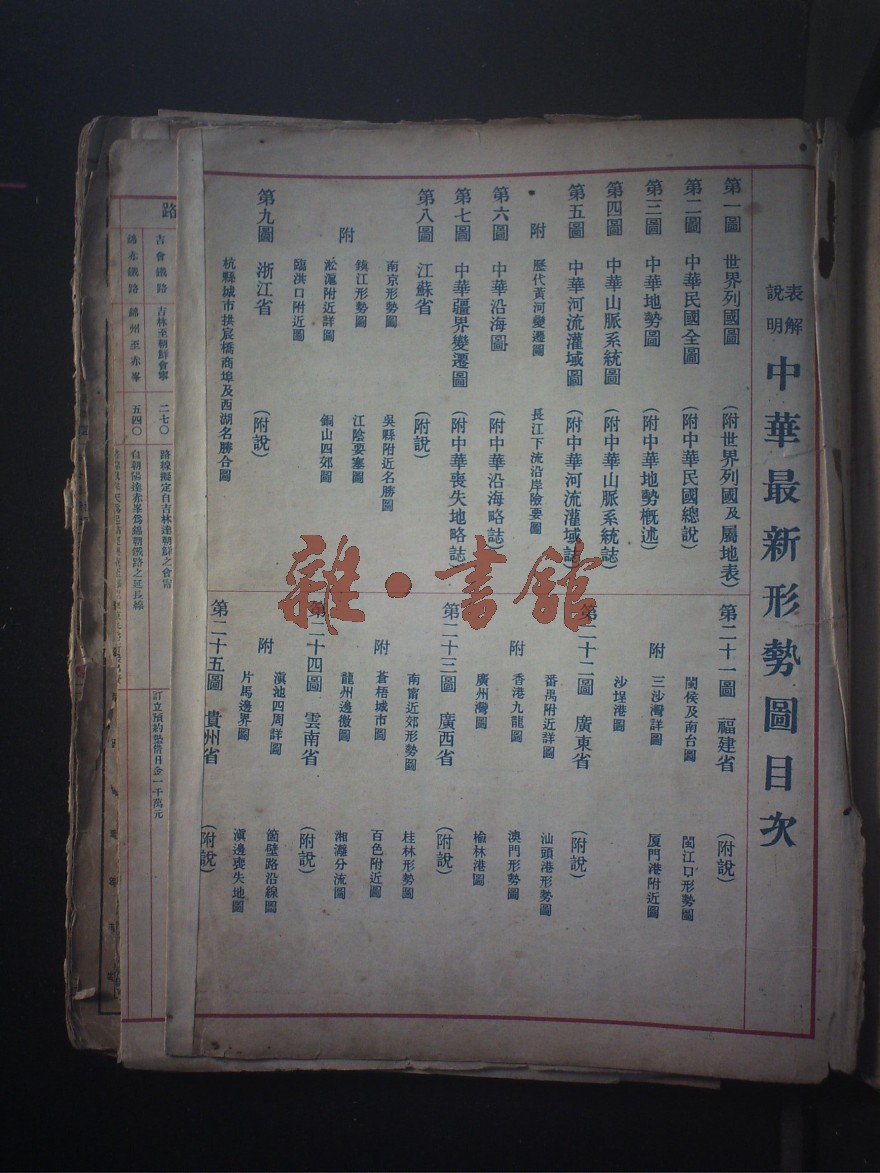 表解
說明
中華最新形勢圖目次
第一圖 世界列國圖 (附世界列國及屬地表)
第二圖 中華民國全圖 (附中華民國總說)
第三圖 中華地勢圖 (附中華地勢概述)
第四圖 中華山脈系統圖 (附中華山脈系統誌)
第五圖 中華河流灌域圖 (附中華河流灌域誌)
附 歷代黃河變遷圖 長江下流沿岸險要圖
第六圖 中華沿海圖 (附中華沿海略誌)
第七圖 中華疆界變遷圖 (附中華喪失地略誌)
第八圖 江蘇省 (附說)
南京形勢圖 吳縣附近名勝圖
附 鎮江形勢圖 江陰要塞圖
淞滬附近詳圖 銅山四郊圖
臨洪口附近圖
第九圖 浙江省 (附說)
杭縣城市拱宸橋商埠及西湖名勝合圖
第二十一圖 福建省 (附說)
閩侯及南台圖 閩江口形勢圖
附 三沙灣詳圖 厦門港附近圖
沙埕港圖
第二十二圖 廣東省 (附說)
番禺附近詳圖 汕頭港形勢圖
附 香港九龍圖 澳門形勢圖
廣州灣圖 榆林港圖
第二十三圖 廣西省 (附說)
南甯近郊形勢圖 桂林形勢圖
附 蒼梧城市圖 百色附近圖
龍州邊徼圖 湘灕分流圖
第二十四圖 雲南省 (附說)
附 滇池四周詳圖 箇壁路沿線圖
片馬邊界圖 滇邊喪失地圖
第二十五圖 貴州省 (附說)
路
吉會鐵路 吉林至朝鮮會寧 二七〇 路線擬定自吉林達朝鮮之會甯 訂立預約墊借日金一千萬元
錦赤鐵路 錦州至赤峯 五四〇 自朝陽達赤峯爲錦朝鐵路之延長線
雜·書館